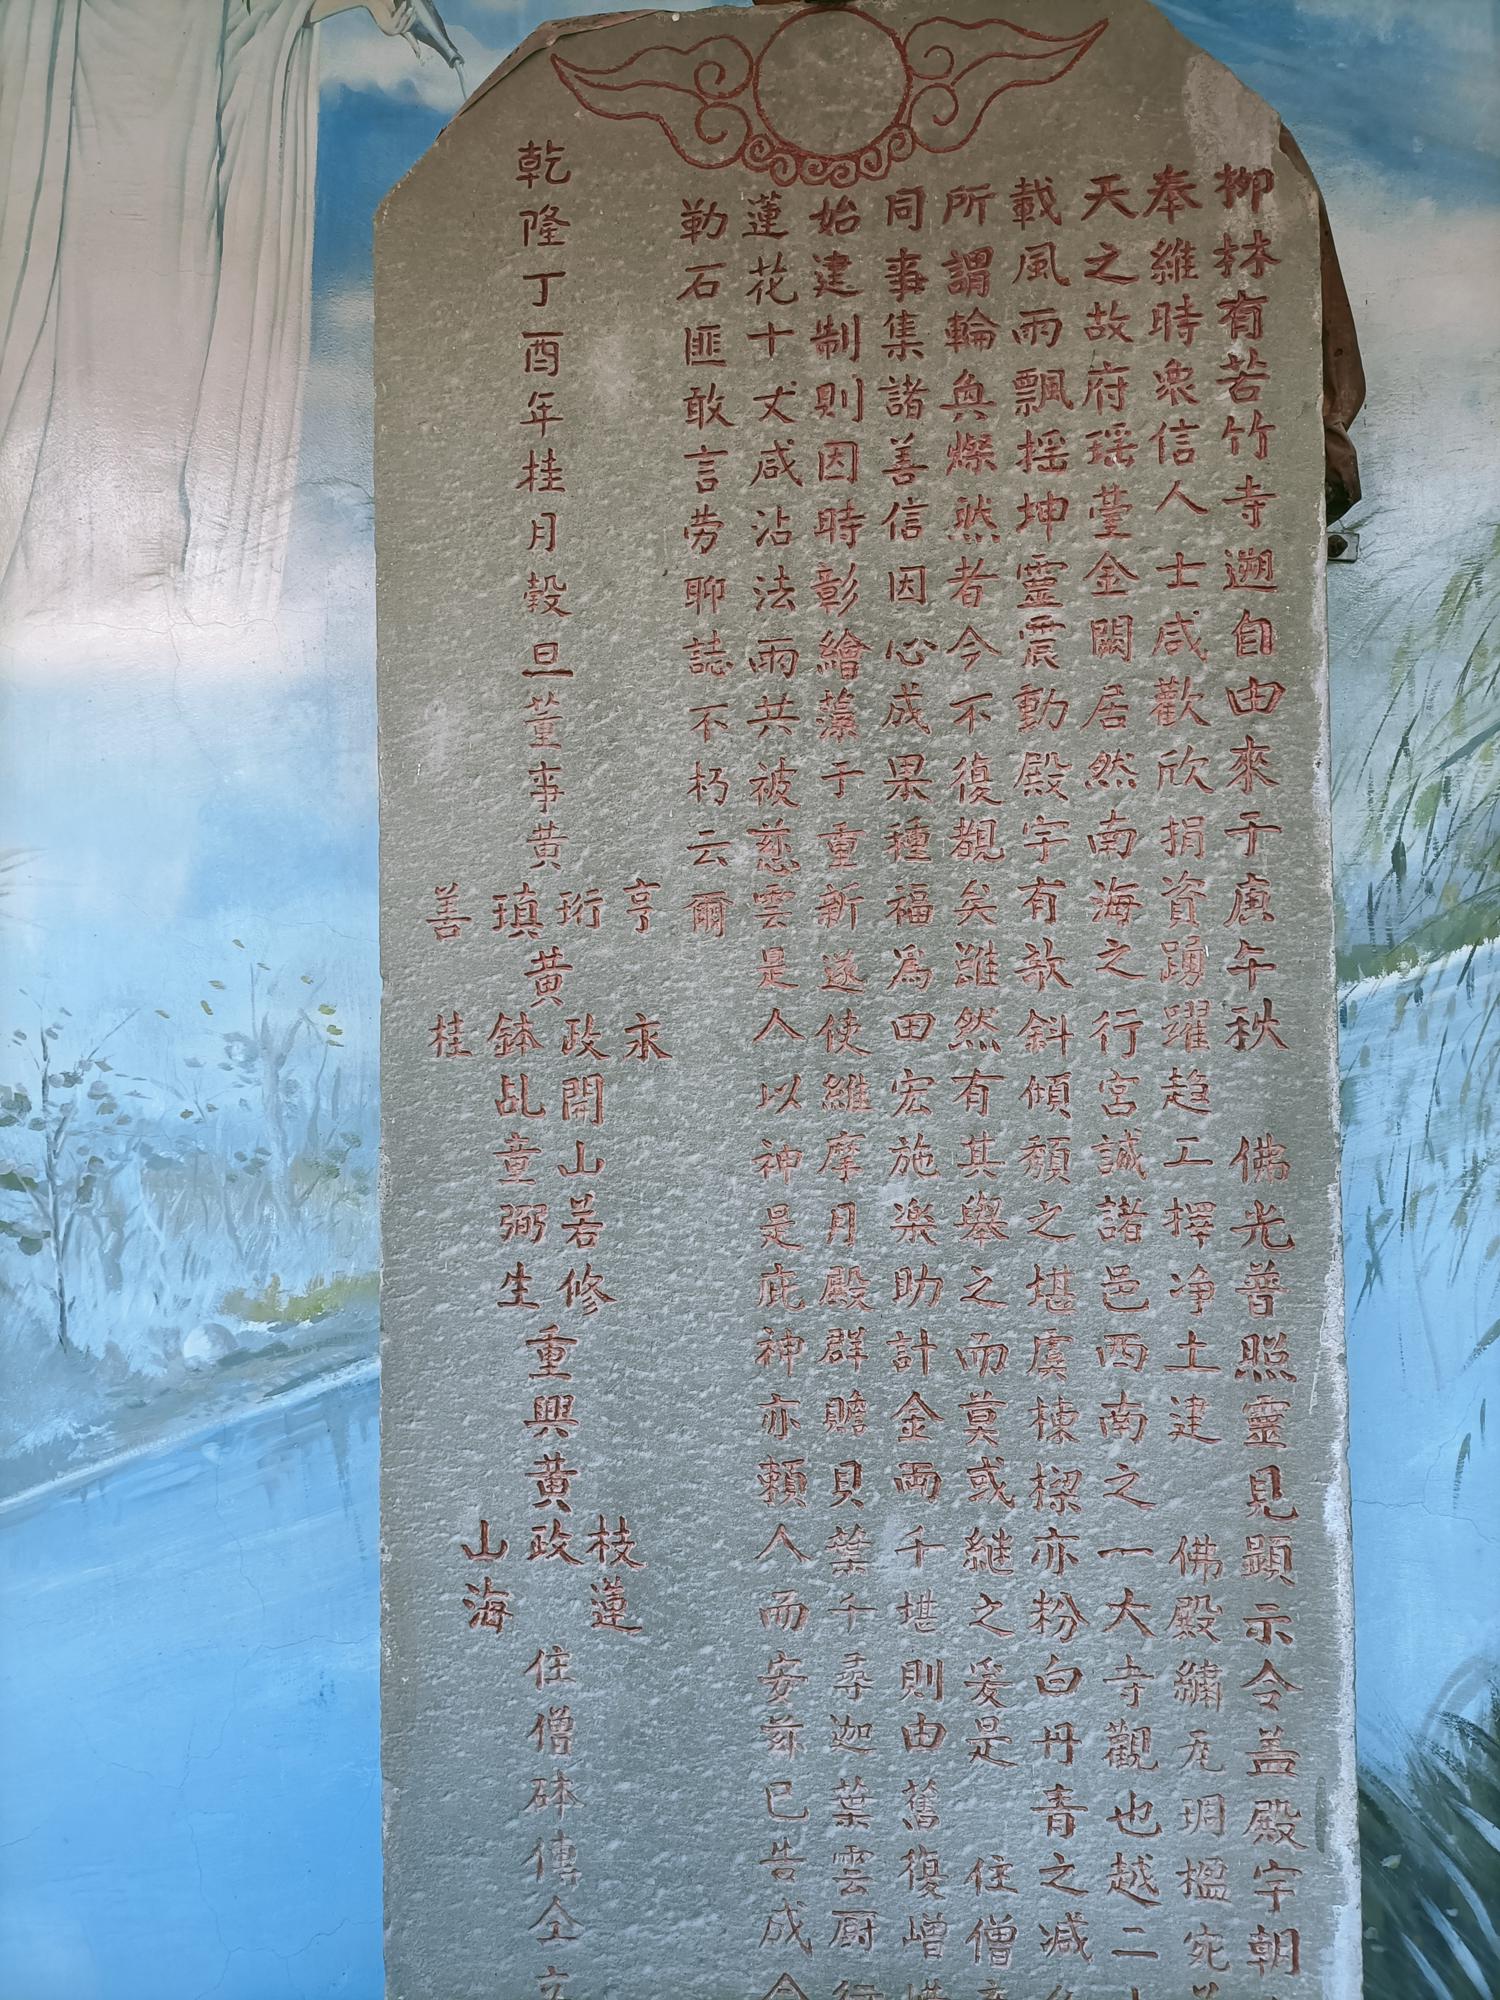 柳林有苦竹寺遡自由來于庚午秋　佛光普照靈見顯示令盖殿宇朝
奉維時衆信人士咸歡欣捐資踴躍趋工擇净土建　佛殿繡瓦琱楹宛
天之故府瑶臺金闕居然南海之行宮誠諸邑西南之一大寺觀也越二
載風雨飄摇坤靈震動殿宇有欹斜傾頽之堪虞棟樑亦粉白丹青之减
所謂輪奐燦然者今不復覩矣雖然有其舉之而莫或継之爰是　住僧
同事集諸善信因心成果種福為田宏施楽助計金両千堪則由舊復增
始建制則因時彰繪藻于重新遂使維摩月殿群瞻貝葉千尋迦葉雲厨行
蓮花十丈咸沾法雨共被慈雲是人以神是庇神亦頼人而安兹已告成
勒石匪敢言劳聊誌不朽云爾
乾隆丁酉年桂月穀旦董事黄
亨
珩
瑱
善
黄
永
政
鉢
桂
開山若修
乩童弼生
重興黄政
枝蓮
山海
住僧砵傳仝立